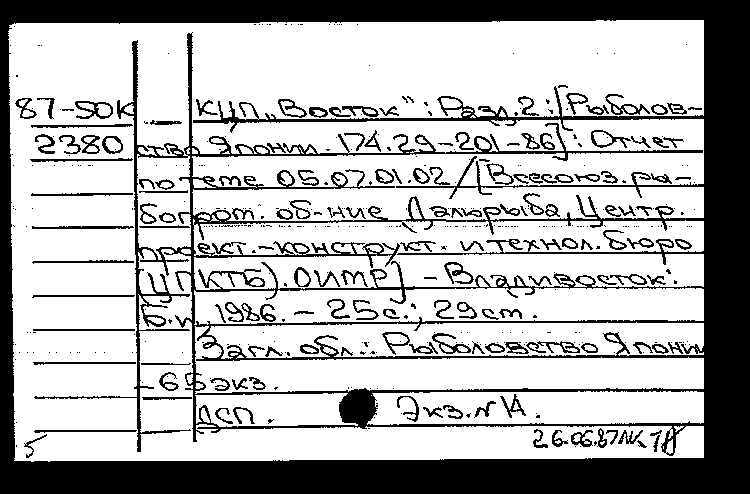 87-50К КЦП „Восток“: Разд. 2: [Рыболов-
2380 ство Японии. 174.29-201-86]: Отчет
по теме 05.07.01.02 / [Всесоюз. ры-
бопром. об-ние Дальрыба, Центр.
проект.-конструкт. и технол. бюро
(ЦПКТБ). ОИМР] - Владивосток:
Б.и., 1986. - 25 с.; 29 см.
Загл. обл.: Рыболовство Японии
- 65 экз.
ДСП. Экз. N 14.
5 26.06.87